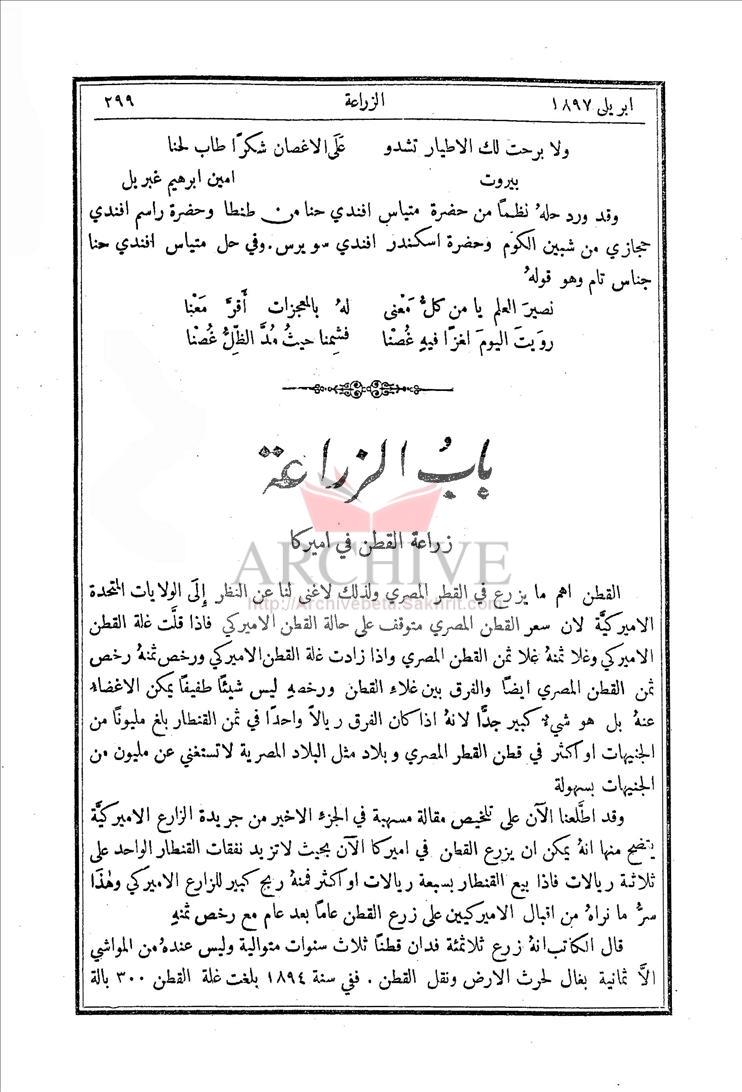 ابريل ١٨٩٧ الزراعة ٢٩٩
ولا برحت لك الاطيار تشدو عَلَى الاغصان شكرًا طاب لحنا
بيروت امين ابرهيم غبريل
وقد ورد حلهُ نظمًا من حضرة متياس افندي حنا من طنطا وحضرة راسم افندي
حجازي من شبين الكوم وحضرة اسكندر افندي سويرس. وفي حل متياس افندي حنا
جناس تام وهو قولهُ
نصيرَ العلم يا من كلُّ مَعْنى لهُ بالمعجزات أَقرَّ مَعْنا
رويتَ اليومَ لغزًا فيهِ غُصْنا فشِمنا حيثُ مُدَّ الظِّلُّ غُصْنا
بابُ الزراعة
زراعة القطن في اميركا
ARCHIVE
http://Archivebeta.Sakhrit.com
القطن اهم ما يزرع في القطر المصري ولذلك لاغنى لنا عن النظر إِلَى الولايات المتحدة
الاميركيَّة لان سعر القطن المصري متوقف على حالة القطن الاميركي فاذا قلَّت غلة القطن
الاميركي وغلا ثمنهُ غلا ثمن القطن المصري واذا زادت غلة القطن الاميركي ورخص ثمنهُ رخص
ثمن القطن المصري ايضًا والفرق بين غلاء القطن ورخصهِ ليس شيئًا طفيفًا يمكن الاغضاء
عنهُ بل هو شيءٌ كبير جدًّا لانهُ اذا كان الفرق ريالًا واحدًا في ثمن القنطار بلغ مليونًا من
الجنيهات او اكثر في قطن القطر المصري وبلاد مثل البلاد المصرية لاتستغني عن مليون من
الجنيهات بسهولة
وقد اطَّلعنا الآن على تلخيص مقالة مسهبة في الجزء الاخير من جريدة الزارع الاميركيَّة
يتضح منها انهُ يمكن ان يزرع القطن في اميركا الآن بحيث لاتزيد نفقات القنطار الواحد على
ثلاثة ريالات فاذا بيع القنطار بسبعة ريالات او اكثر فمنهُ ربح كبير للزارع الاميركي وهٰذا
سرُّ ما نراهُ من اقبال الاميركيين على زرع القطن عامًا بعد عام مع رخص ثمنهِ
قال الكاتب انهُ زرع ثلاثمئة فدان قطنًا ثلاث سنوات متوالية وليس عندهُ من المواشي
الاَّ ثمانية بغال لحرث الارض ونقل القطن . ففي سنة ١٨٩٤ بلغت غلة القطن ٣٠٠ بالة